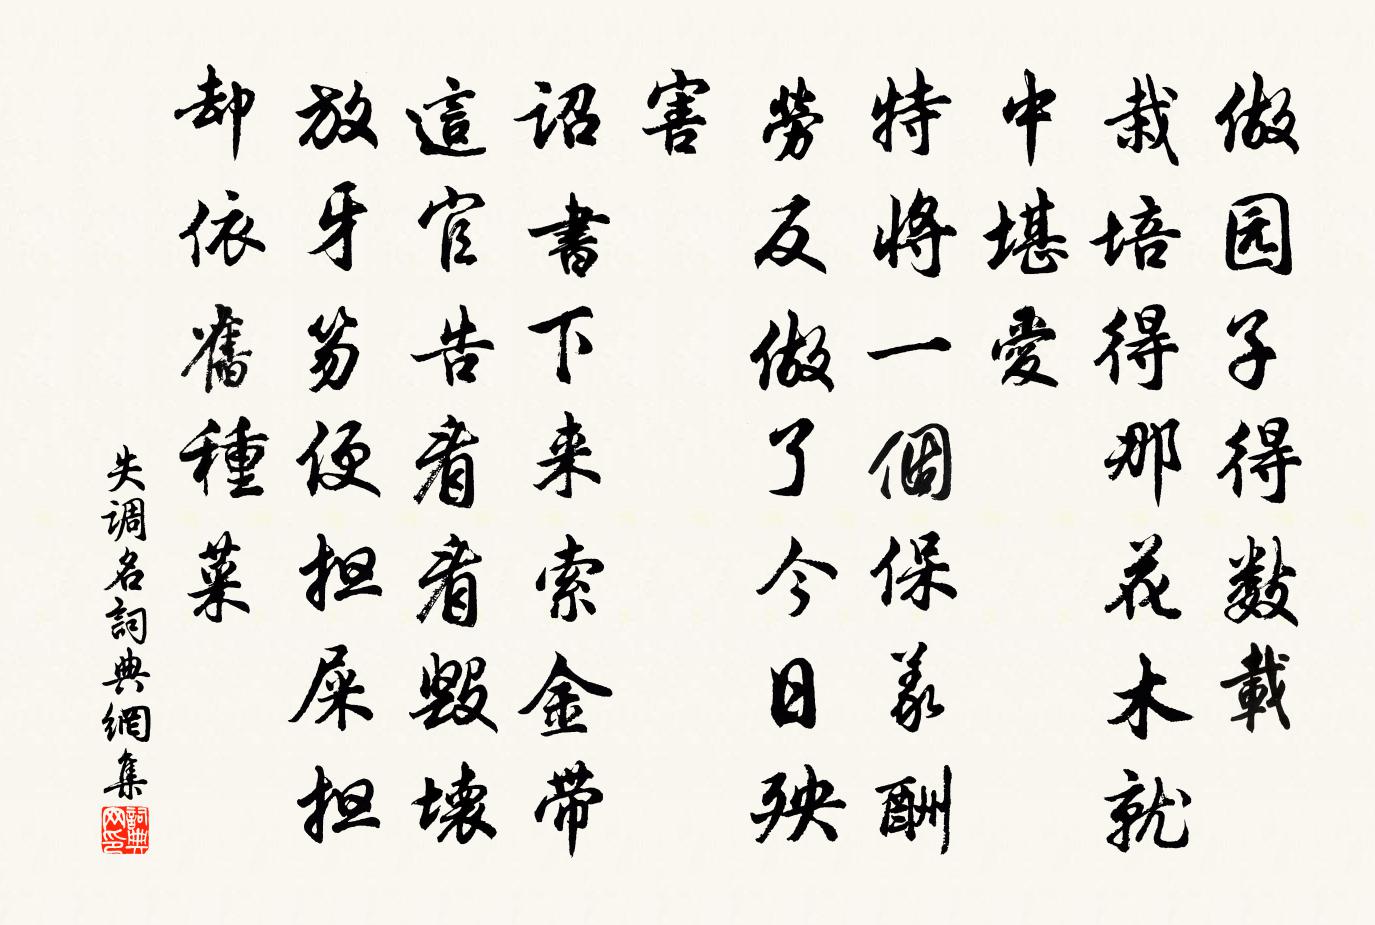 做园子得数載
栽培得那花木就
中堪愛
特將一個保義酬
勞反做了今日殃
害
詔書下来索金带
這官告看看毀壞
放牙笏便担屎担
却依舊種菜
失调名詞典網集
詞典网印